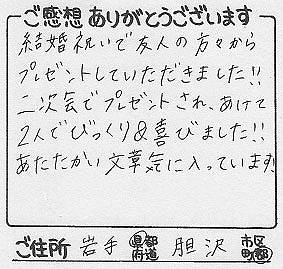 ご感想 ありがとうございます
結婚祝いで友人の方々から
プレゼントしていただきました!!
二次会でプレゼントされ、あけて
2人でびっくり&喜びました!!
あたたかい文章気に入っています!
ご住所 岩手 県都府道 胆沢 市区町郡